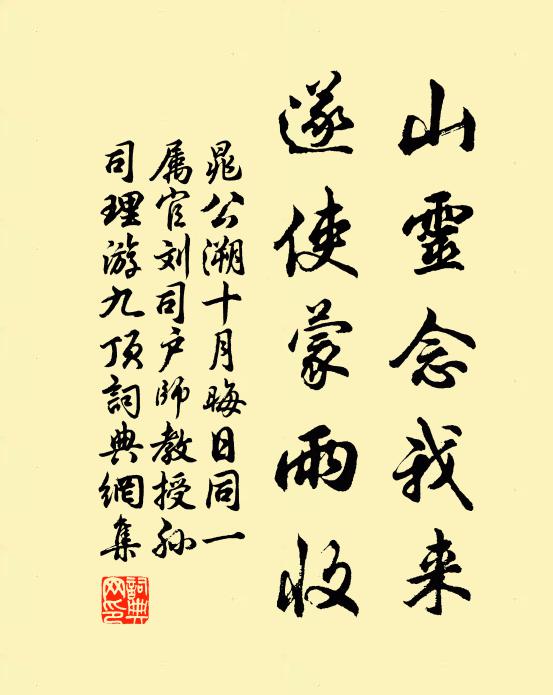 山靈念我来
遂使蒙雨收
晁公溯十月晦日同一
属官刘司户師教授孙
司理游九顶詞典網集
詞典網印